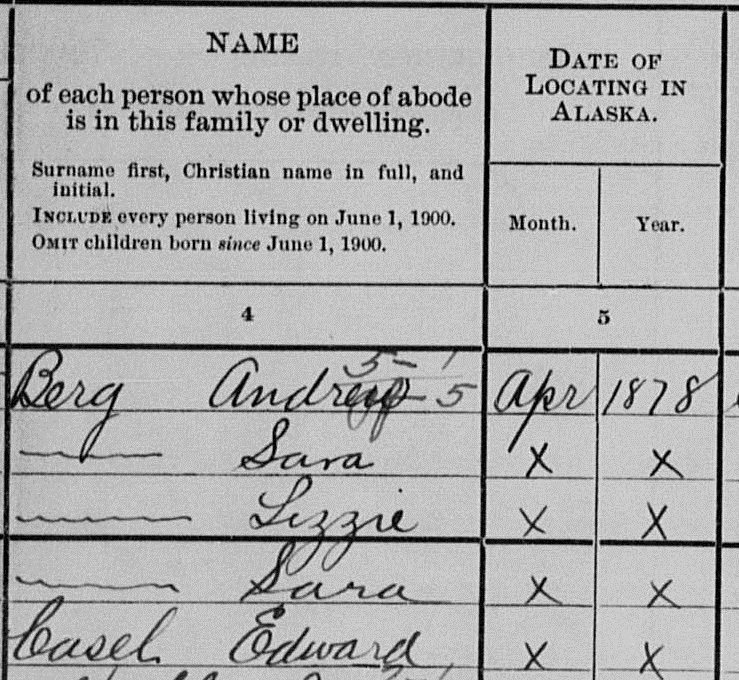 NAME
of each person whose place of abode
is in this family or dwelling.
Surname first, Christian name in full, and
initial.
INCLUDE every person living on June 1, 1900.
OMIT children born since June 1, 1900.
DATE OF
LOCATING IN
ALASKA.
Month. Year.
4 5
5 - 1
Berg Andrew - 5 Apr 1878
—— Sara X X
—— Lizzie X X
—— Sara X X
Casel Edward X X